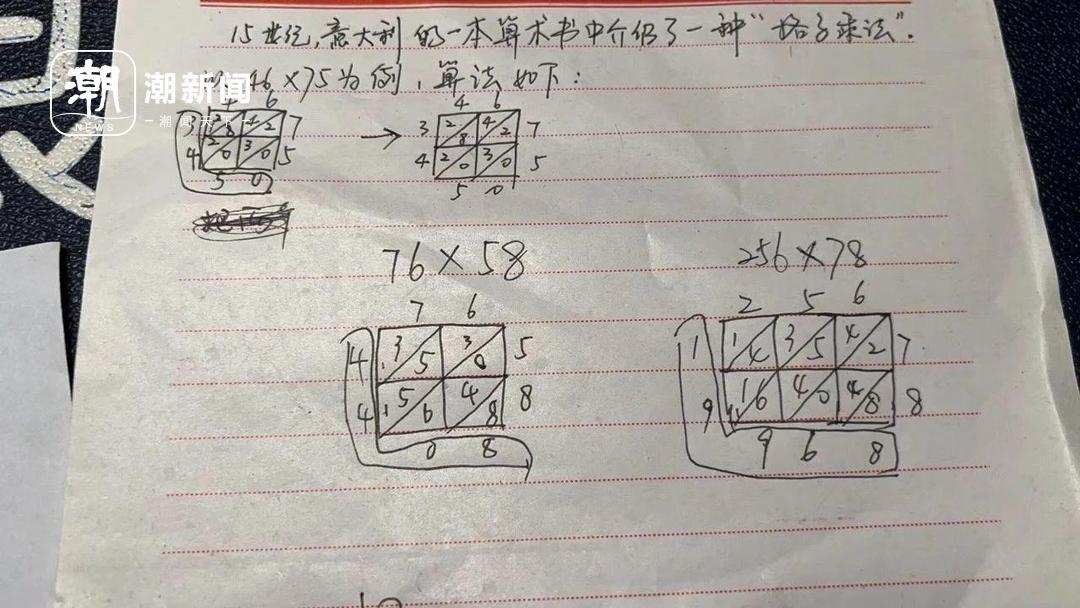 15世纪,意大利的一本算术书中介绍了一种"格子乘法".
46×75为例,算法如下:
潮 潮新闻
NEWS 潮闻天下
4 6
3 2/8 4/2 7
4 2/0 3/0 5
5 0
→
4 6
3 2/8 4/2 7
4 2/0 3/0 5
5 0
76×58
7 6
4 1 3/5 3/0 5
4 1 5/6 4/8 8
0 8
256×78
2 5 6
1 1/4 3/5 4/2 7
9 1 1/6 4/0 4/8 8
9 6 8